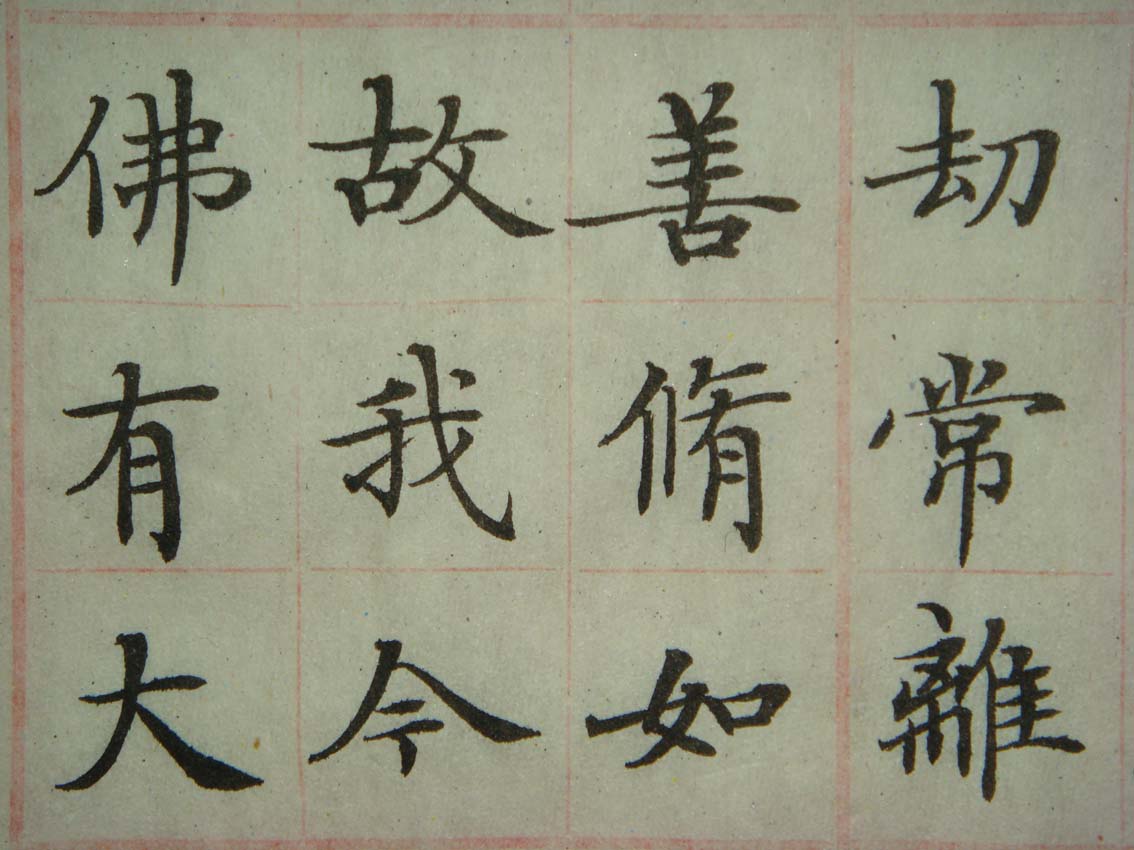 刼常離
善脩如
故我今
佛有大